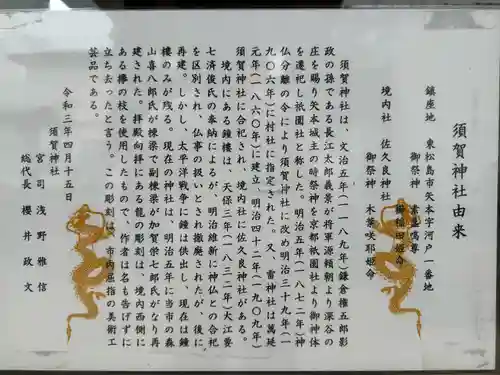 須賀神社由来
鎮座地　東松島市矢本字河戸一番地
御祭神　素盞嗚尊
稲田姫命
境内社　佐久良神社
御祭神　木花咲耶姫命
須賀神社は、文治五年(一一八九年)鎌倉権五郎影
政の孫である長江太郎義景が将軍源頼朝より深谷の
庄を賜り矢本城主の時祭神を京都祇園社より御神体
を遷祀し祇園社と称した。明治五年(一八七二年)神
仏分離の令により須賀神社に改め明治三十九年(一
九〇六年)に村社に指定された。又、雷神社は萬延
元年(一八六〇年)に建立、明治四十二年(一九〇九年)
須賀神社に合祀され、境内社に佐久良神社がある。
境内にある鐘楼は、天保三年(一八三二年)大江要
七済俊氏の奉納によるが、明治維新に神仏との合祀
を区別され、仏事の扱いとされ撤廃されたが、後に
再建。しかし、太平洋戦争に鐘は供出し、現在は鐘
楼のみが残る。現在の神社は、明治五年に当市の森
山喜八郎氏が棟梁で副棟梁が加賀保七郎氏がなり再
建された。拝殿向拝にある龍の彫刻は、境内西側に
ある欅の枝を使用したもので、作者は名も告げずに
立ち去ったと言う。この彫刻は、市内屈指の美術工
芸品である。
令和三年四月十五日
須賀神社
宮司　浅野雅信
総代長　櫻井政文